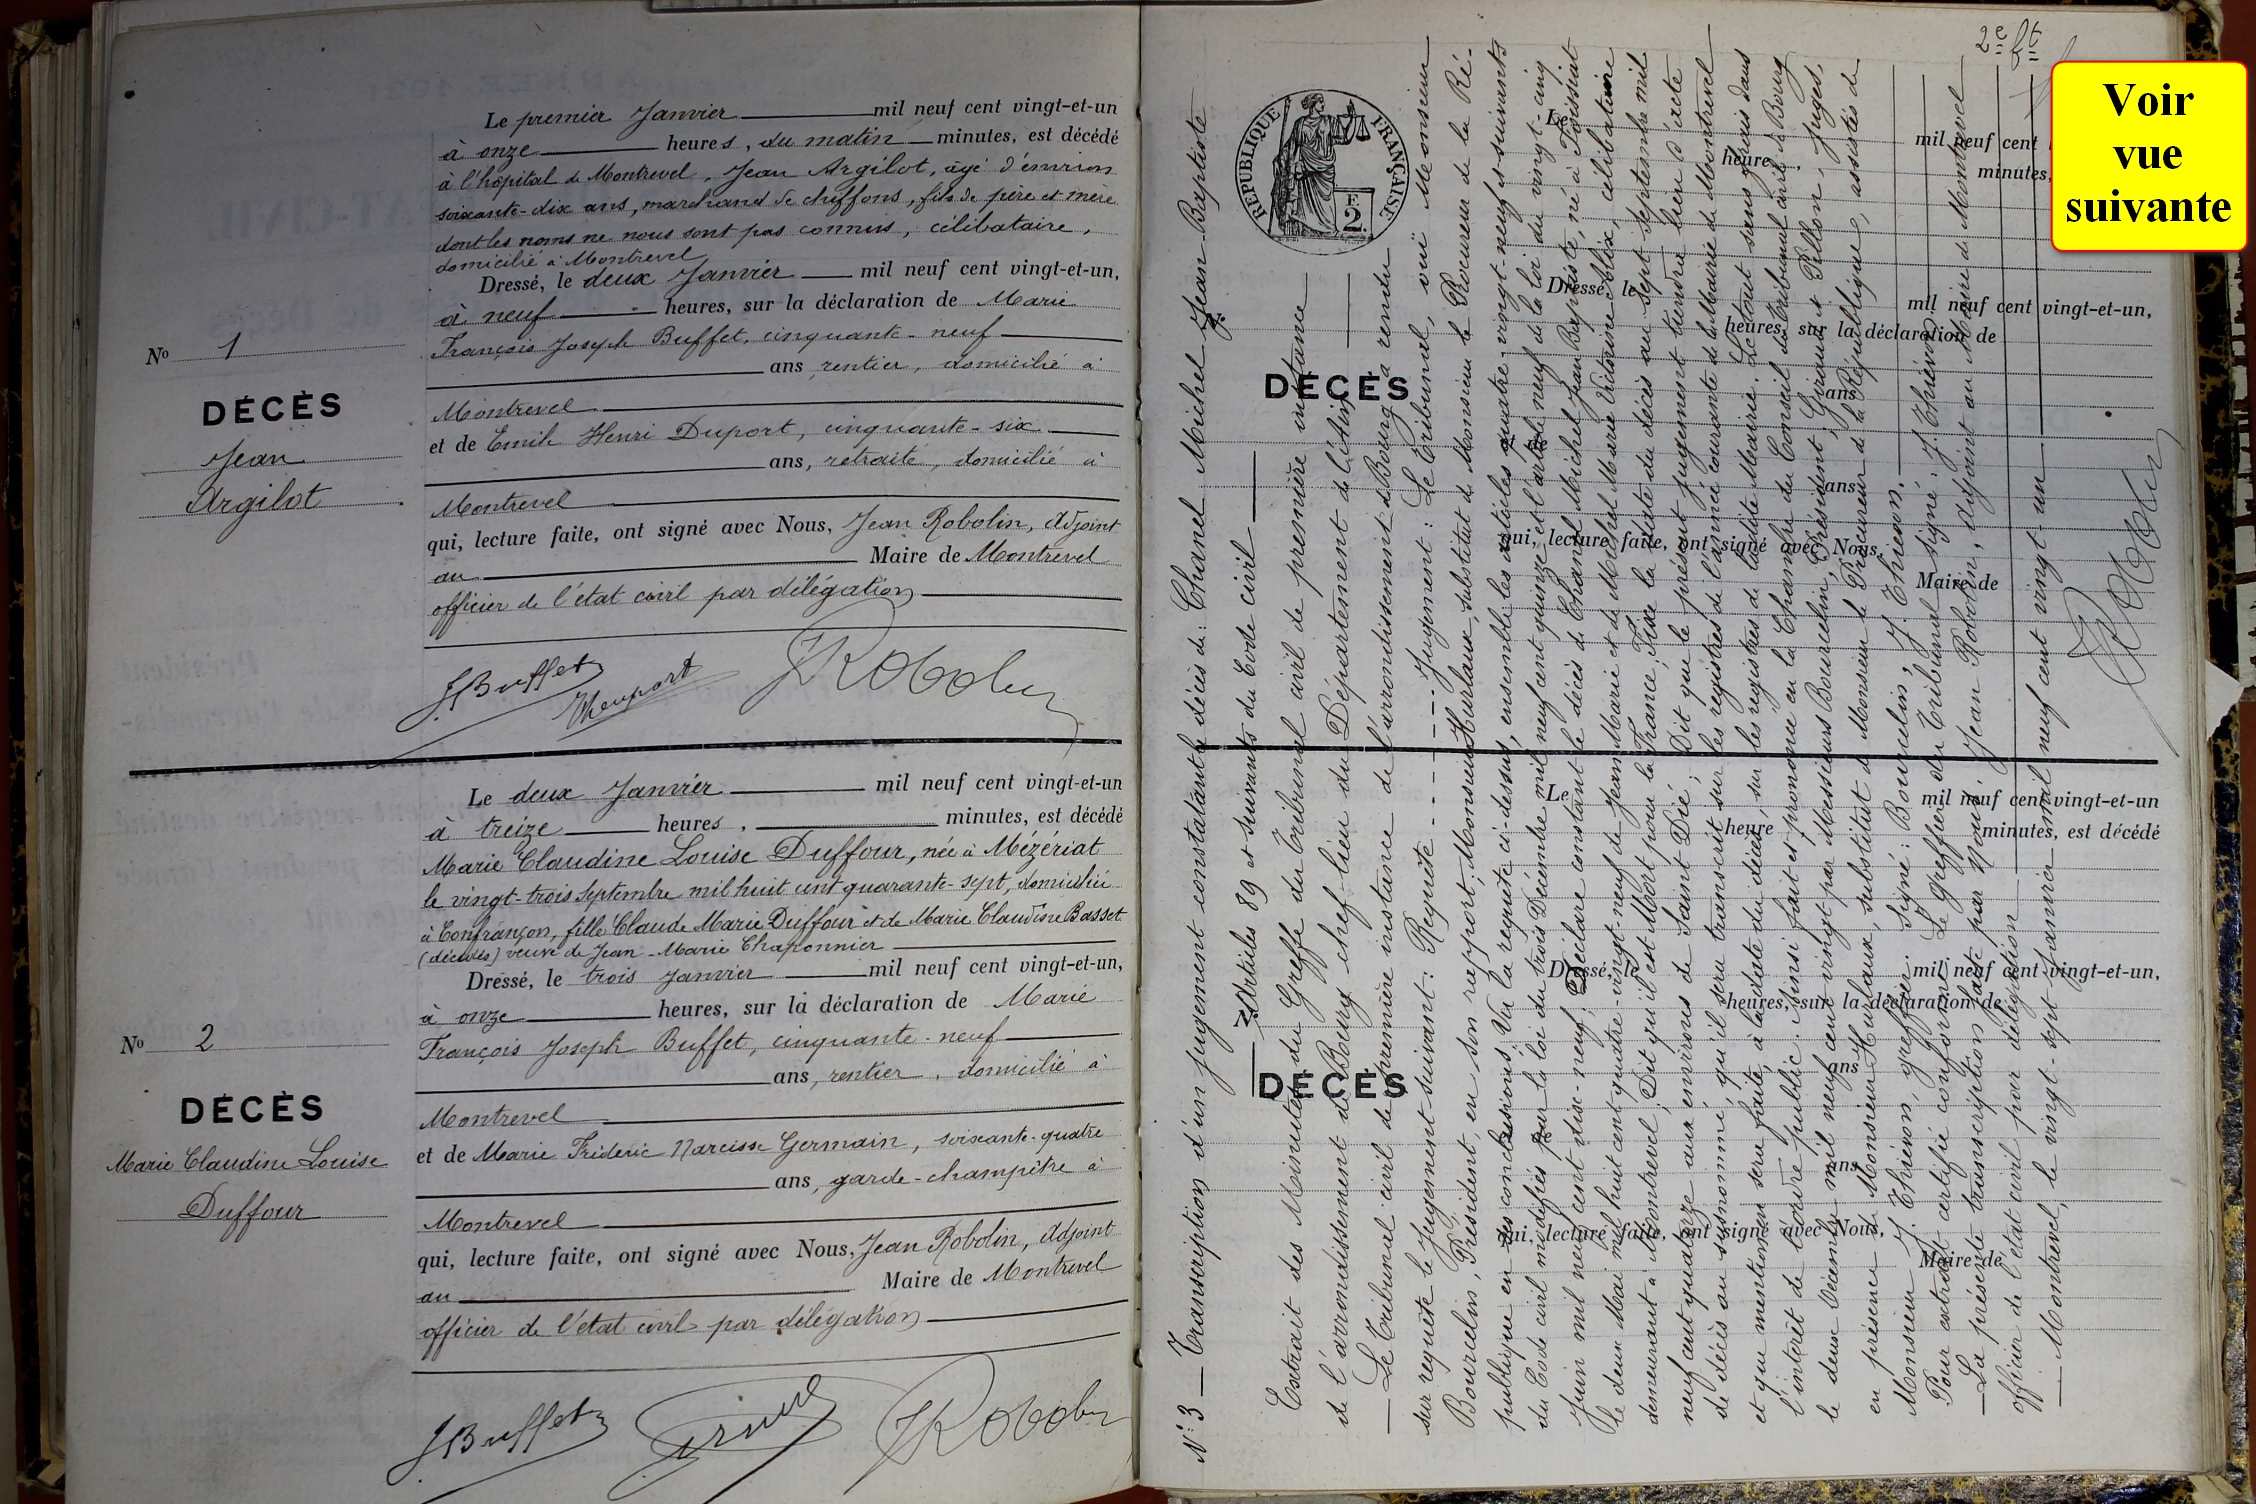 Le premier Janvier mil neuf cent vingt-et-un
à onze heures, du matin minutes, est décédé
à l'hôpital de Montrevel, Jean Argilot, âgé d'environ
soixante-dix ans, marchand de chiffons, fils de père et mère
dont les noms ne nous sont pas connus, célibataire,
domicilié à Montrevel
Dressé, le deux Janvier mil neuf cent vingt-et-un,
à neuf heures, sur la déclaration de Marie
François Joseph Buffet, cinquante-neuf
ans, rentier, domicilié à
Montrevel
et de Emile Henri Duport, cinquante-six
ans, retraité, domicilié à
Montrevel
qui, lecture faite, ont signé avec Nous, Jean Robolin, Adjoint
au Maire de Montrevel
officier de l'état civil par délégation
No 1
DÉCÈS
Jean
Argilot
JBuffet
JRobolin
Le deux Janvier mil neuf cent vingt-et-un
à treize heures, minutes, est décédé
Marie Claudine Louise Duffour, née à Mézériat
le vingt-trois Septembre mil huit cent quarante-sept, domiciliée
à Confrançon, fille Claude Marie Duffour et de Marie Claudine Basset
(décédés) veuve de Jean-Marie Chaponnier
Dressé, le trois Janvier mil neuf cent vingt-et-un,
à onze heures, sur la déclaration de Marie
François Joseph Buffet, cinquante-neuf
ans, rentier, domicilié à
Montrevel
et de Marie Fréderic Narcisse Germain, soixante-quatre
ans, garde-champêtre à
Montrevel
qui, lecture faite, ont signé avec Nous, Jean Robolin, Adjoint
au Maire de Montrevel
officier de l'état civil par délégation
No 2
DÉCÈS
Marie Claudine Louise
Duffour
JBuffet
JRobolin
2e ft
Voir
vue
suivante
RÉPUBLIQUE FRANÇAISE
E
2.
N° 3 — Transcription d'un jugement constatant le décès de: Chanel Michel Jean-Baptiste
Articles 89 et suivants du Code civil
Extrait des Minutes du Greffe du Tribunal civil de première instance
de l'arrondissement de Bourg chef-lieu du Département de l'Ain
— Le Tribunal civil de première instance de l'arrondissement de Bourg a rendu
sur requête le Jugement suivant: Requête - - - - - - Jugement: Le Tribunal, ouï Monsieur
Bourcelin, Président, en son rapport, Monsieur Hurlaux, substitut de Monsieur le Procureur de la Ré-
publique en ses conclusions; Vu la requête ci-dessus, ensemble les articles quatre-vingt-neuf et suivants
du Code civil modifiés par la loi du trois Décembre mil neuf cent quinze et l'article neuf de la loi du vingt-cinq
Juin mil neuf cent dix-neuf; Déclare constant le décès de Chanel Michel Jean Baptiste, né à Foissiat
le deux Mai mil huit cent quatre-vingt-neuf de Jean Marie et de Michel Marie Victorine Alix, célibataire
demeurant à Montrevel; Dit qu'il est Mort pour la France; Fixe la date du décès au sept septembre mil
neuf cent quatorze aux environs de Saint Dié; Dit que le présent jugement tiendra lieu d'acte
de décès au susnommé, qu'il sera transcrit sur les registres de l'année courante de la Mairie de Montrevel
et que mention en sera faite, à la date du décès, sur les registres de ladite Mairie. Le tout sans frais dans
l'intérêt de l'ordre public. Ainsi fait et prononcé en la Chambre du Conseil du Tribunal civil de Bourg
le deux Décembre mil neuf cent vingt par Messieurs Bourcelin, Président, Giraud et Pillon, juges,
en présence de Monsieur Hurlaux, substitut de Monsieur le Procureur de la République, assistés de
Monsieur J. Thiévon, greffier. Signé: Bourcelin, J. Thiévon.
Pour extrait certifié conforme: Le Greffier du Tribunal signé: J. Thiévon
— La présente transcription faite par Nous, Jean Robolin, Adjoint au Maire de Montrevel
officier de l'état civil par délégation
— Montrevel, le vingt-sept Janvier mil neuf cent vingt-un
Le mil neuf cent
heure minutes,
DÉCÈS
Dressé, le mil neuf cent vingt-et-un,
heures, sur la déclaration de
ans
et de
ans
qui, lecture faite, ont signé avec Nous,
Maire de
Le mil neuf cent vingt-et-un
heure minutes, est décédé
DÉCÈS
Dressé, le mil neuf cent vingt-et-un,
heures, sur la déclaration de
ans
ans
qui, lecture faite, ont signé avec Nous,
Maire de